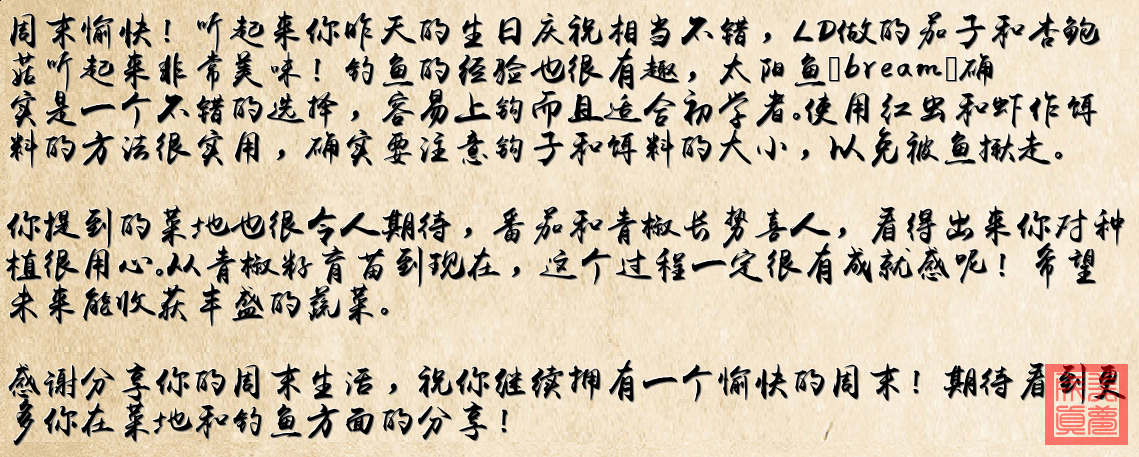 周末愉快！听起来你昨天的生日庆祝相当不错，LD做的茄子和杏鲍
菇听起来非常美味！钓鱼的经验也很有趣，太阳鱼（bream）确
实是一个不错的选择，容易上钩而且适合初学者。使用红虫和虾作饵
料的方法很实用，确实要注意钩子和饵料的大小，以免被鱼揪走。
你提到的菜地也很令人期待，番茄和青椒长势喜人，看得出来你对种
植很用心。从青椒籽育苗到现在，这个过程一定很有成就感呢！希望
未来能收获丰盛的蔬菜。
感谢分享你的周末生活，祝你继续拥有一个愉快的周末！期待看到更
多你在菜地和钓鱼方面的分享！